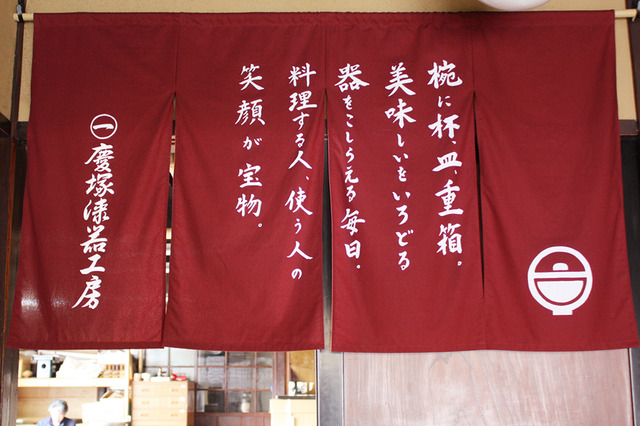 椀に杯、皿、重箱。
美味しいをいろどる
器をこしらえる毎日。
料理する人、使う人の
笑顔が宝物。
㊀慶塚漆器工房